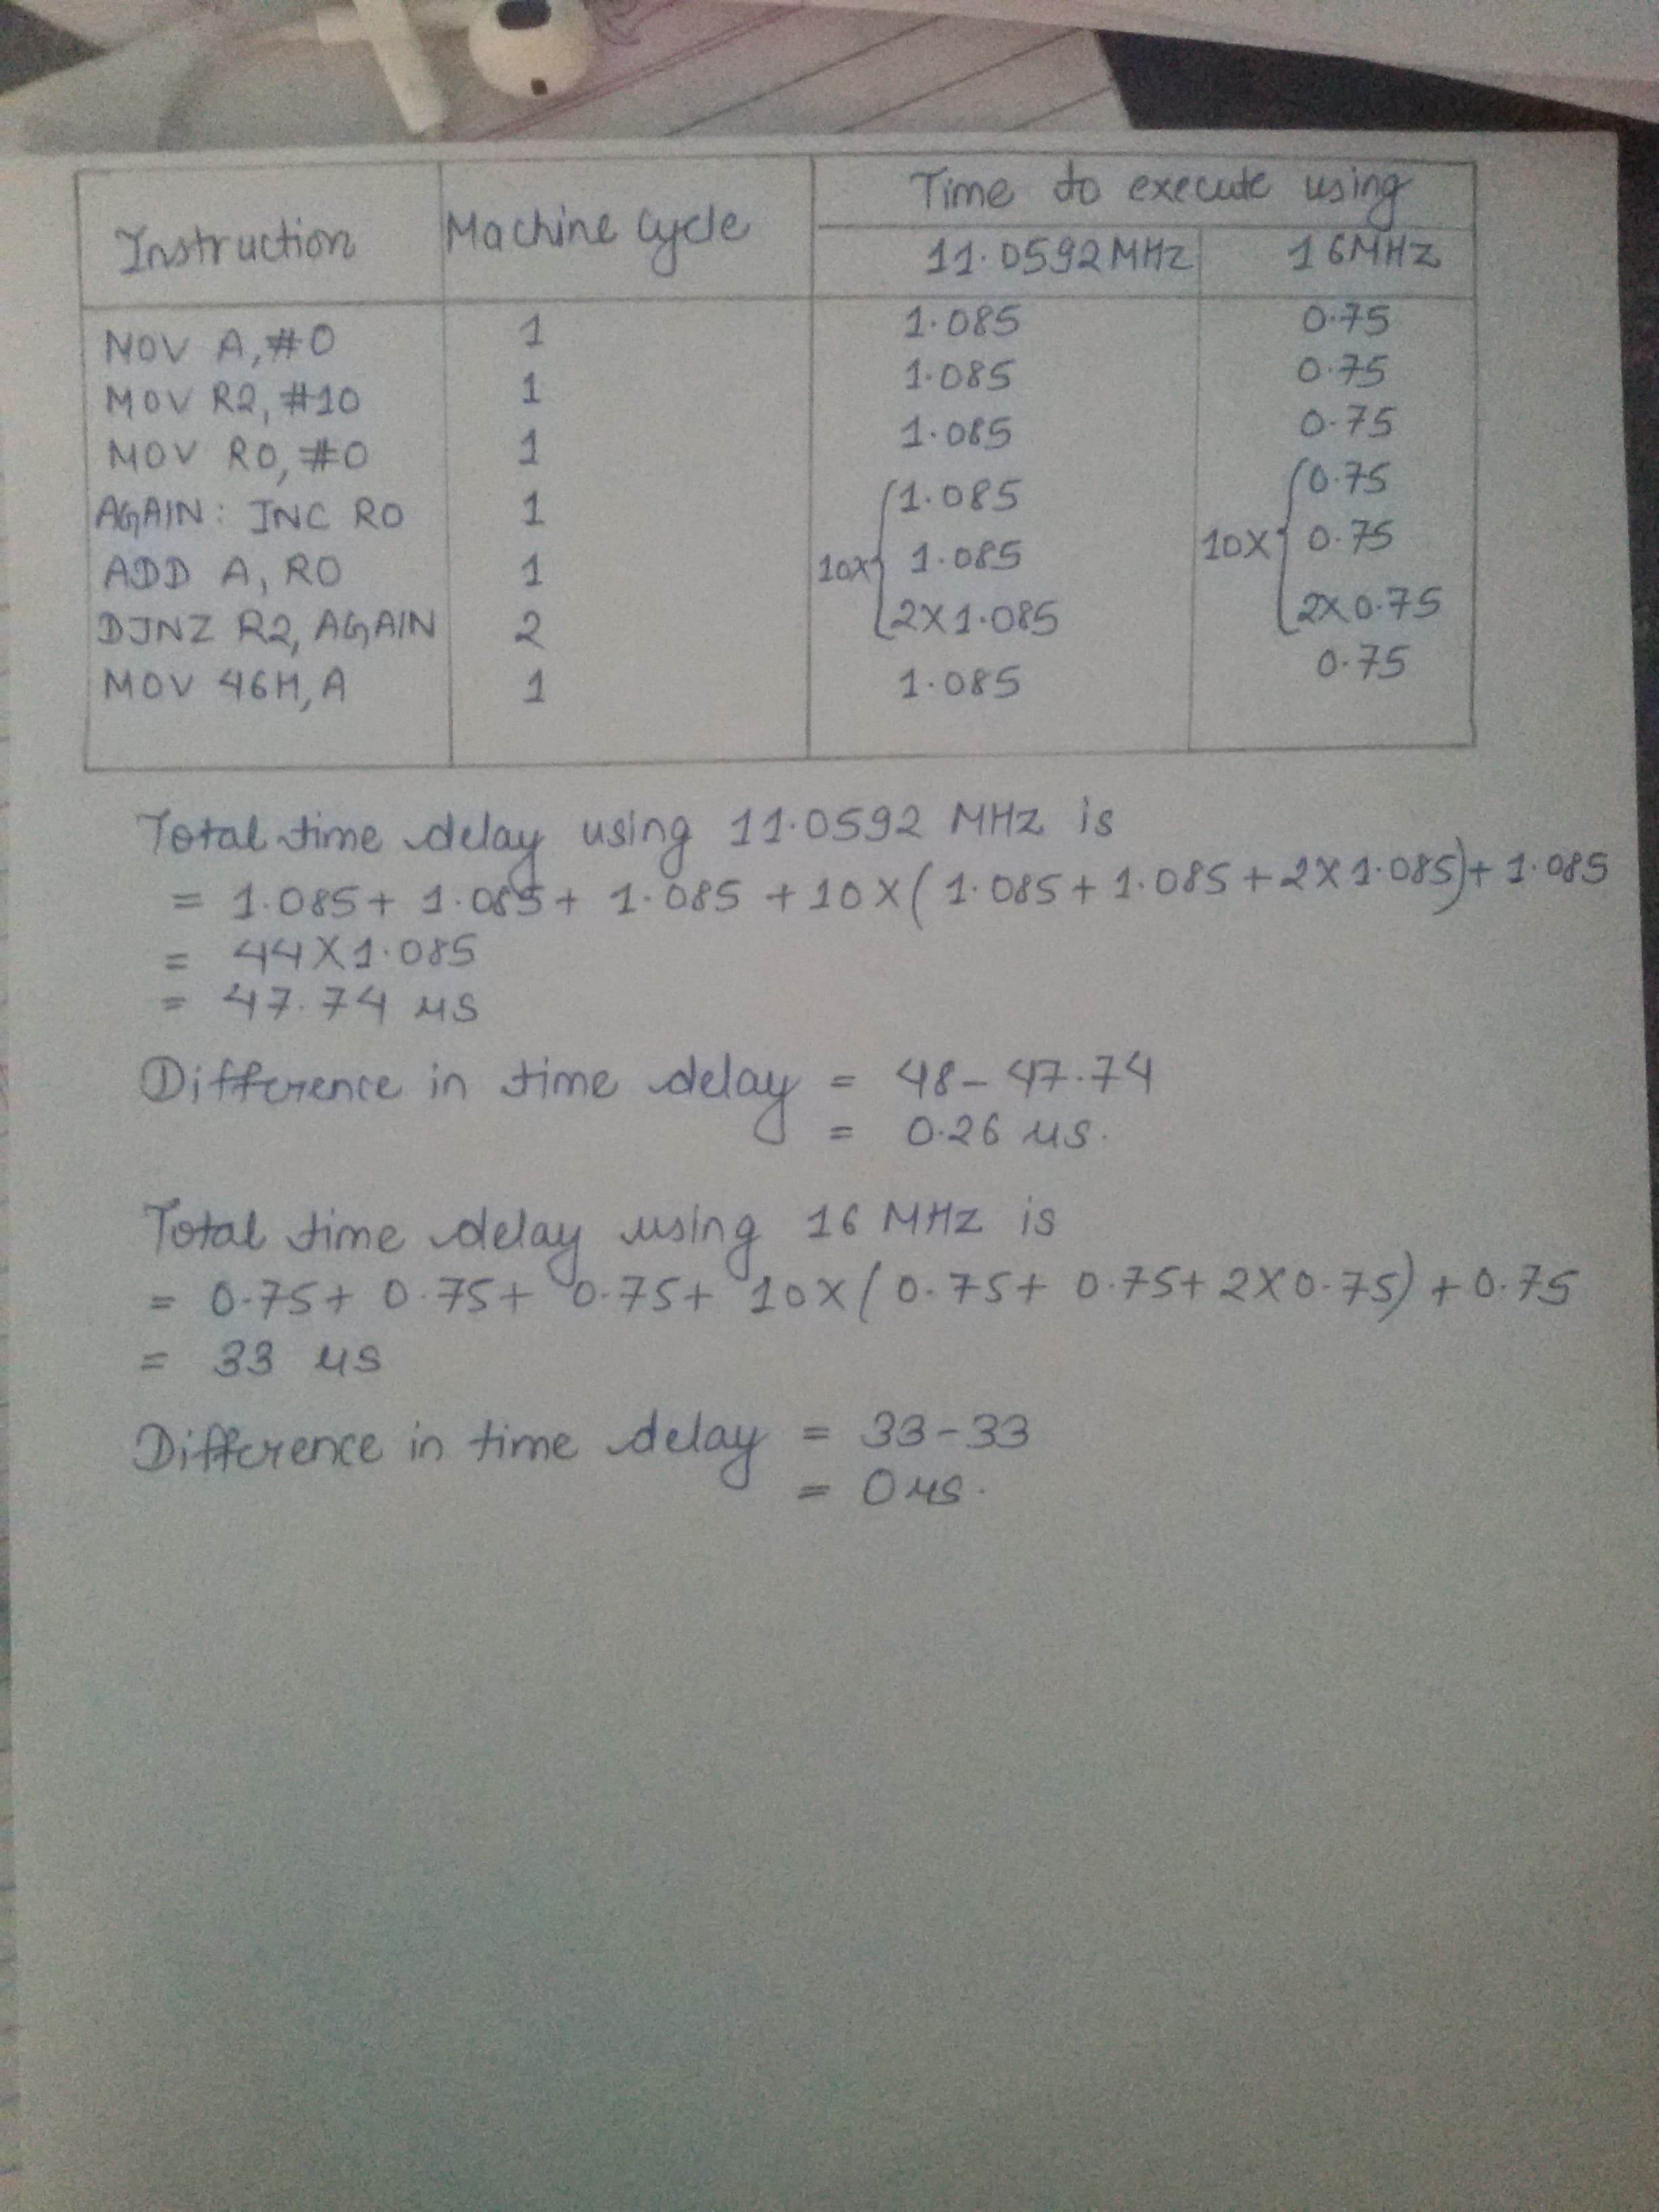 Instruction Machine Cycle Time to execute using
11.0592MHz 16MHz
MOV A, #0 1 1.085 0.75
MOV R2, #10 1 1.085 0.75
MOV R0, #0 1 1.085 0.75
AGAIN: INC R0 1 1.085 0.75
ADD A, R0 1 10x 1.085 10x 0.75
DJNZ R2, AGAIN 2 2x1.085 2x0.75
MOV 46H, A 1 1.085 0.75
Total time delay using 11.0592 MHz is
= 1.085+ 1.085+ 1.085 +10x( 1.085+1.085+2x1.085)+1.085
= 44x1.085
= 47.74 μs
Difference in time delay = 48-47.74
= 0.26 μs.
Total time delay using 16 MHz is
= 0.75+ 0.75+ 0.75+ 10x( 0.75+ 0.75+2x0.75) +0.75
= 33 μs
Difference in time delay = 33-33
= 0 μs.